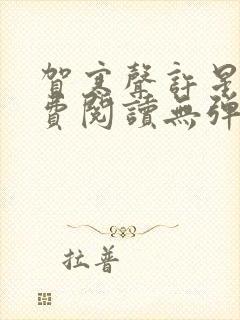 賀寒聲許星
費閱讀無彈
拉普